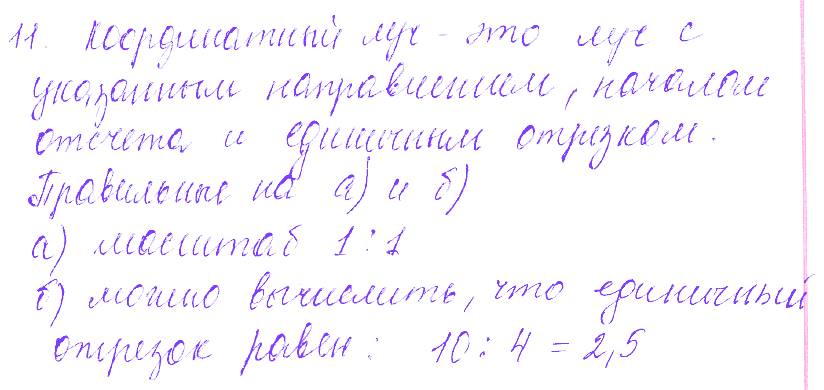 11. Координатный луч - это луч с
указанным направлением, началом
отсчета и единичным отрезком.
Правильные на а) и б)
а) масштаб 1:1
б) можно вычислить, что единичный
отрезок равен: 10:4 = 2,5